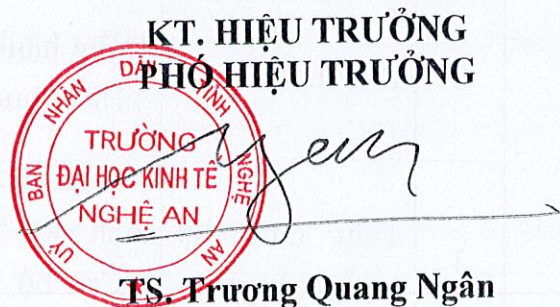 KT. HIỆU TRƯỞNG
PHÓ HIỆU TRƯỞNG
ỦY BAN NHÂN DÂN TỈNH NGHỆ AN
TRƯỜNG
ĐẠI HỌC KINH TẾ
NGHỆ AN
TS. Trương Quang Ngân